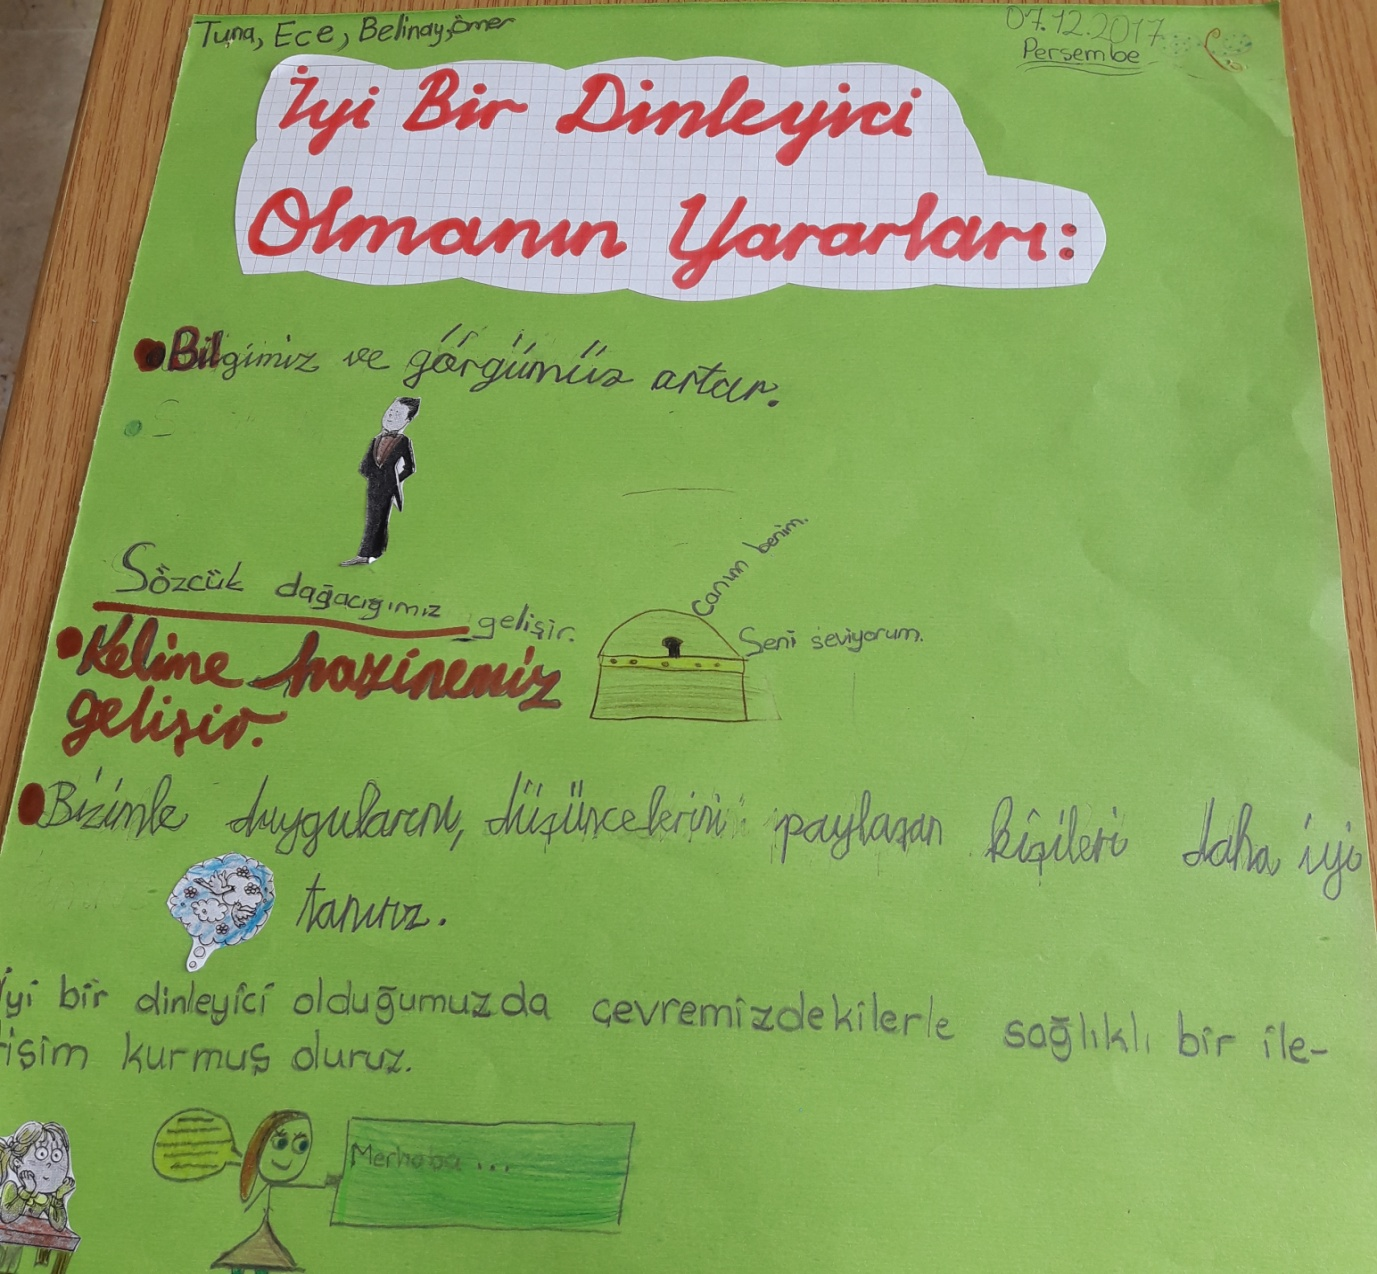 Tuna, Ece, Belinay, Ömer
07.12.2017
Perşembe
İyi Bir Dinleyici
Olmanın Yararları:
Bilgimiz ve görgümüz artar.
Sözcük dağacığımız gelişir.
Canım benim.
Seni seviyorum.
Kelime hazinemiz
gelişir.
Bizimle duygularını, düşüncelerini paylaşan kişileri daha iyi
tanırız.
İyi bir dinleyici olduğumuzda çevremizdekilerle sağlıklı bir ile-
tişim kurmuş oluruz.
Merhaba...